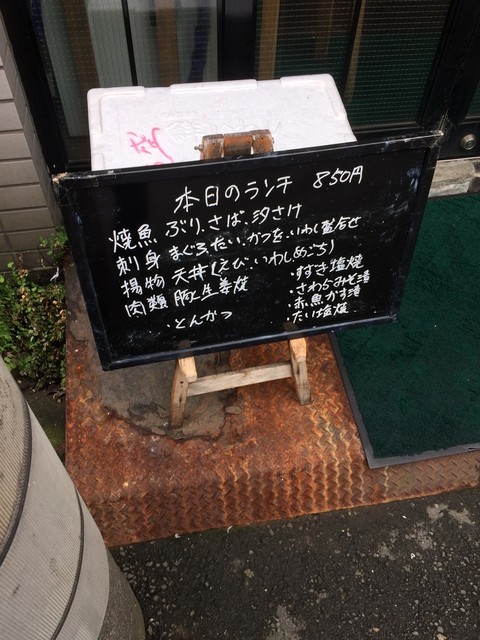 本日のランチ 850円
焼魚 ぶり、さば、汐さけ
刺身 まぐろ、たい、かつを、いわし盛合せ
揚物 天丼(えび、いわし、めごち)
肉類 豚生姜焼
・とんかつ
・すずき塩焼
・さわらみそ漬
・赤魚かす漬
・たい塩焼